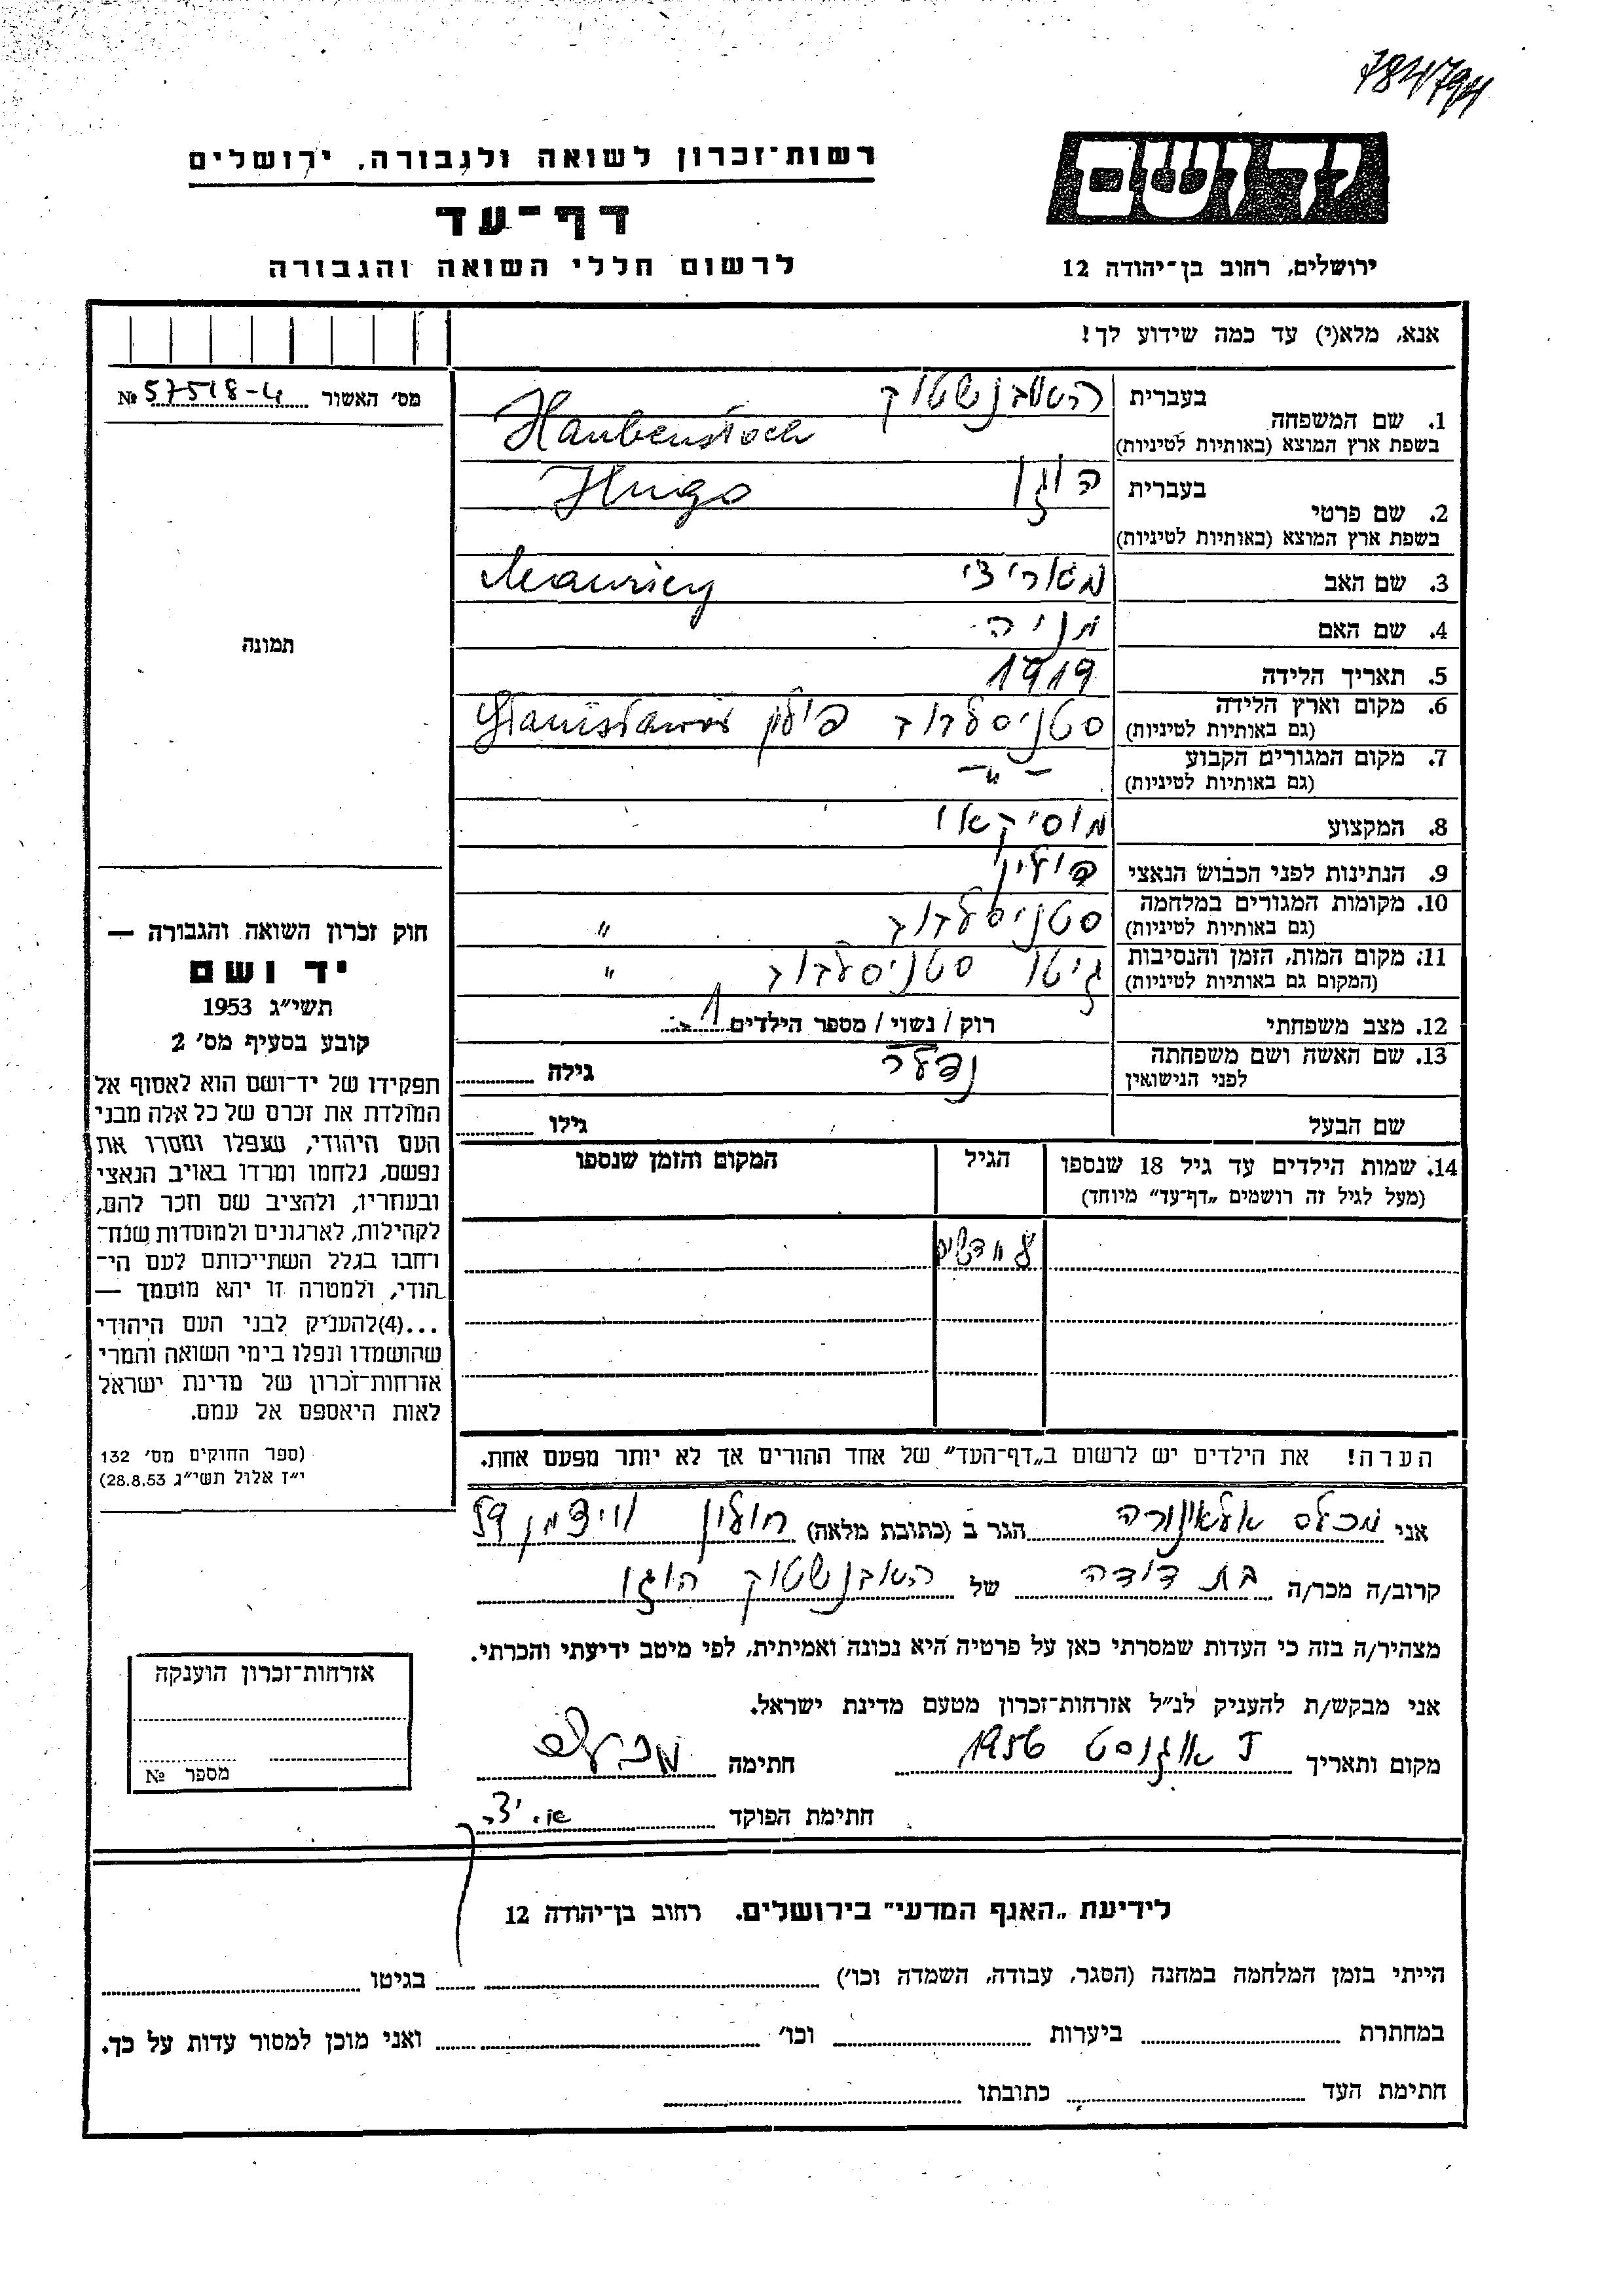 784794
רשות־זכרון לשואה ולגבורה, ירושלים
יד ושם
דף־עד
לרשום חללי השואה והגבורה
ירושלים, רחוב בן־יהודה 12
אנא, מלא(י) עד כמה שידוע לך!
מס׳ האשור № 57518-4
תמונה
1. שם המשפחה בעברית האובנשטוק
בשפת ארץ המוצא (באותיות לטיניות) Haubenstock
2. שם פרטי בעברית הוגו
בשפת ארץ המוצא (באותיות לטיניות) Hugo
3. שם האב מאוריצי Mauricy
4. שם האם מניה
5. תאריך הלידה 1919
6. מקום וארץ הלידה סטניסלבוב פולין Stanisławów
(גם באותיות לטיניות)
7. מקום המגורים הקבוע — " —
(גם באותיות לטיניות)
8. המקצוע מוסיקאי
9. הנתינות לפני הכבוש הנאצי פולין
10. מקומות המגורים במלחמה סטניסלבוב "
(גם באותיות לטיניות)
11. מקום המות, הזמן והנסיבות גיטו סטניסלבוב "
(המקום גם באותיות לטיניות)
12. מצב משפחתי רוק / נשוי / מספר הילדים 1
13. שם האשה ושם משפחתה לפני הנישואין גילה
שם הבעל גילו
14. שמות הילדים עד גיל 18 שנספו הגיל המקום והזמן שנספו
(מעל לגיל זה רושמים „דף־עד" מיוחד)
הערה! את הילדים יש לרשום ב„דף־העד" של אחד ההורים אך לא יותר מפעם אחת.
חוק זכרון השואה והגבורה —
יד ושם
תשי״ג 1953
קובע בסעיף מס׳ 2
תפקידו של יד־ושם הוא לאסוף אל
המולדת את זכרם של כל אלה מבני
העם היהודי, שנפלו ומסרו את
נפשם, נלחמו ומרדו באויב הנאצי
ובעוזריו, ולהציב שם וזכר להם,
לקהילות, לארגונים ולמוסדות שנח־
רחבו בגלל השתייכותם לעם הי־
הודי, ולמטרה זו יהא מוסמך —
...(4) להעניק לבני העם היהודי
שהושמדו ונפלו בימי השואה והמרי
אזרחות־זכרון של מדינת ישראל
לאות היאספם אל עמם.
(ספר החוקים מס׳ 132
י״ז אלול תשי״ג 28.8.53)
אני אלאונורה הגר ב (כתובת מלאה) חולון ויצמן
קרוב/ה מכר/ה בת דודה של האובנשטוק הוגו
מצהיר/ה בזה כי העדות שמסרתי כאן על פרטיה היא נכונה ואמיתית, לפי מיטב ידיעתי והכרתי.
אני מבקש/ת להעניק לנ״ל אזרחות־זכרון מטעם מדינת ישראל.
מקום ותאריך אוגוסט 1956 חתימה
חתימת הפוקד
אזרחות־זכרון הוענקה
מספר №
לידיעת „האגף המדעי" בירושלים. רחוב בן־יהודה 12
הייתי בזמן המלחמה במחנה (הסגר, עבודה, השמדה וכו׳) בגיטו
במחתרת ביערות וכו׳ ואני מוכן למסור עדות על כך.
חתימת העד כתובתו